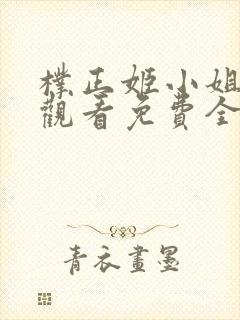 樸正姬小姐
觀看免費全
青衣畫墨